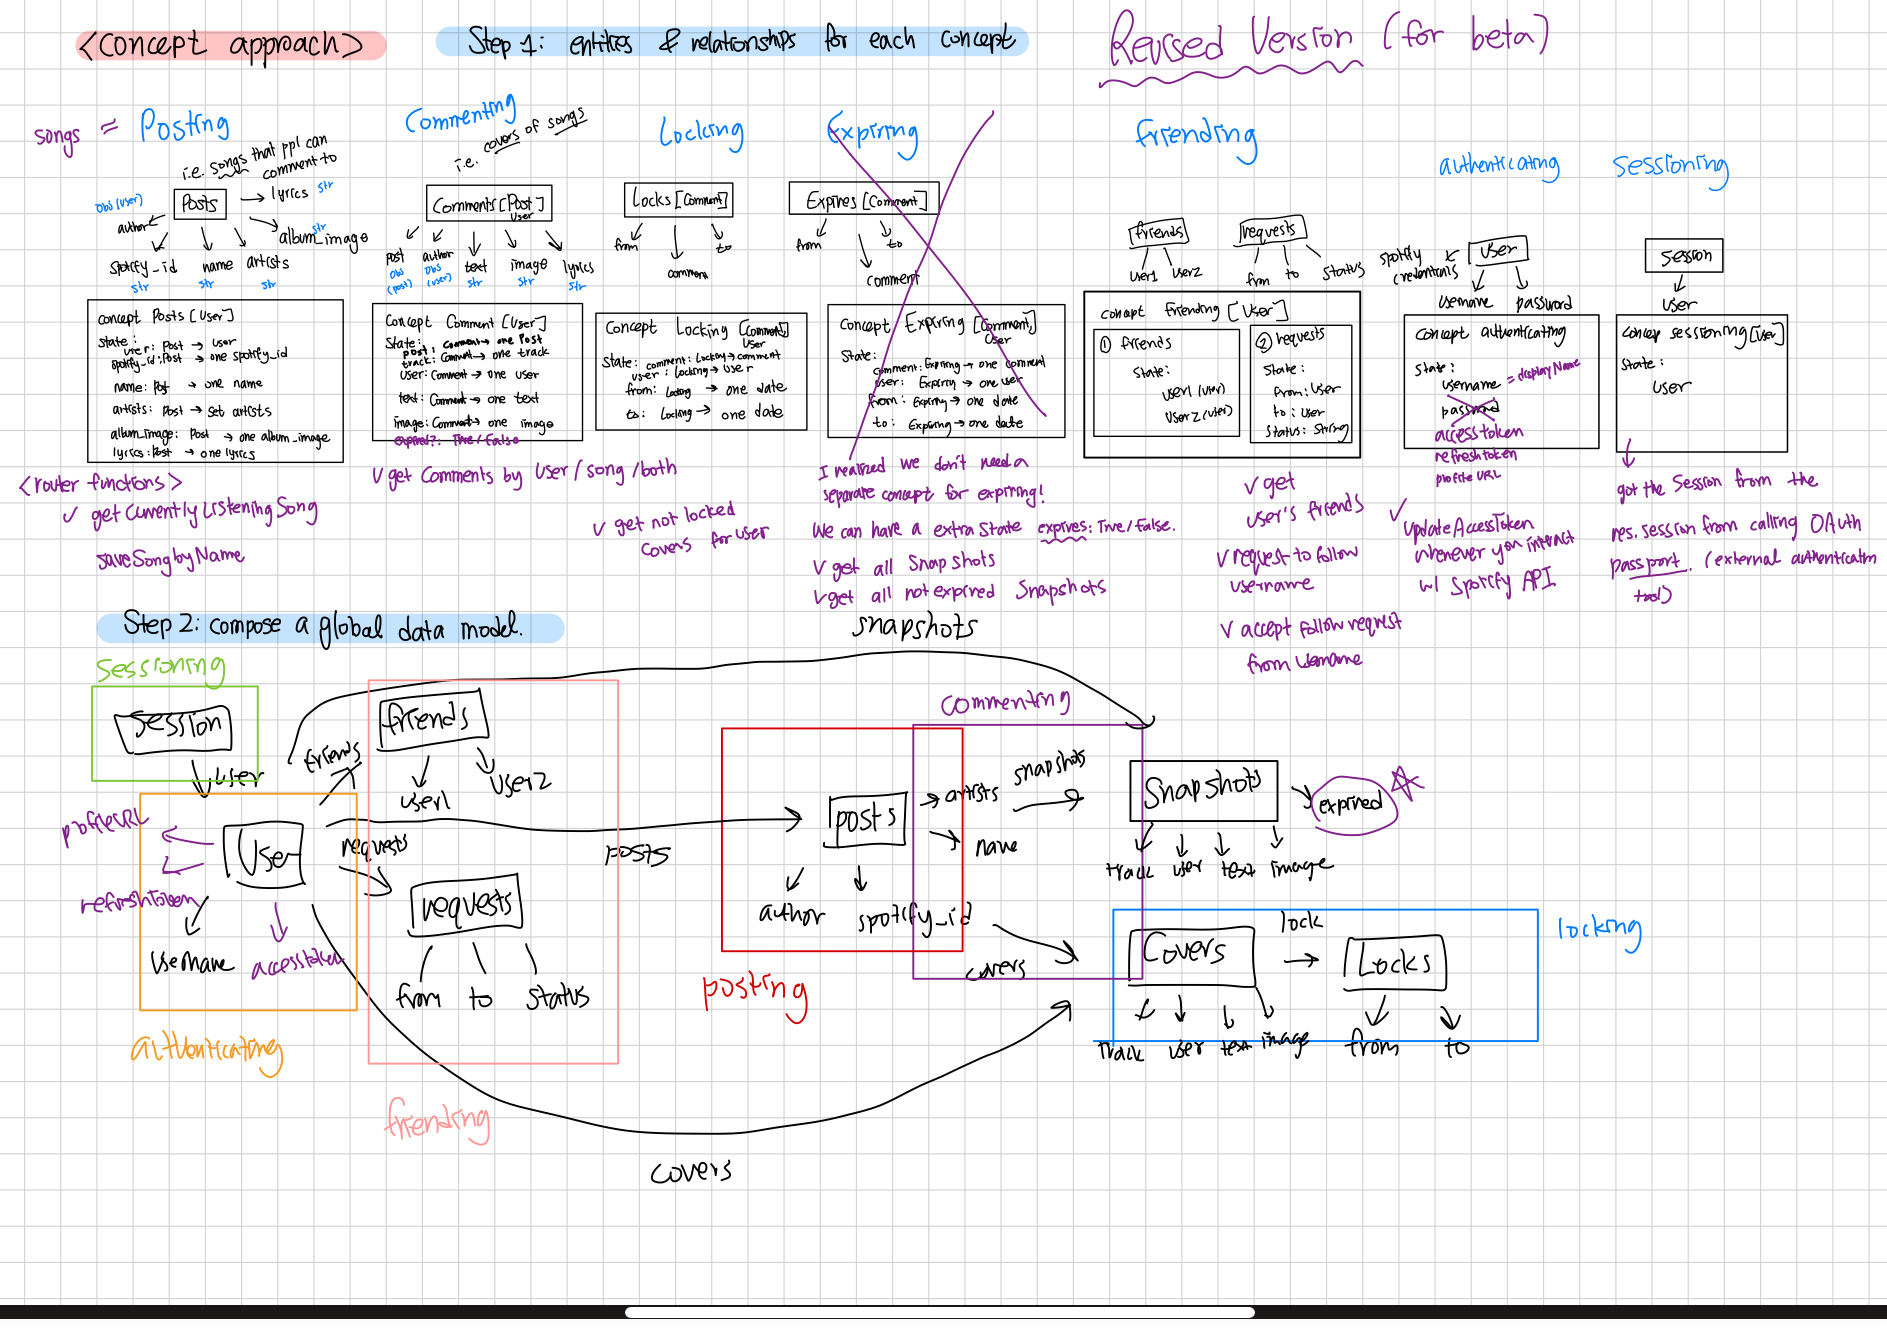 <Concept approach>
Step 1: entities & relationships for each concept
Revised Version (for beta)
songs = Posting
i.e. songs that ppl can
comment to
Posts
obs (user)
author
lyrics str
album_image
str
spotify_id
name
artists
str
str
str
Concept Posts [User]
State:
user: Post → user
spotify_id: Post → one spotify_id
name: Post → one name
artists: Post → set artists
album_image: Post → one album_image
lyrics: Post → one lyrics
<router functions>
✓ getCurrentlyListeningSong
saveSongbyName
Commenting
i.e. covers of songs
Comments [Post]
User
post
author
text
image
lyrics
obs
(post)
obs
(user)
str
str
str
Concept Comment [User]
State:
post: Comment → one Post
track: Comment → one track
user: Comment → one user
text: Comment → one text
image: Comment → one image
expired?: True/False
✓ get Comments by User/song/both
Locking
Locks [Comment]
from
comment
to
Concept Locking [Comment,
User
State: comment: Locking → comment
user: Locking → User
from: Locking → one date
to: Locking → one date
✓ get not locked
covers for user
Expiring
Expires [Comment]
from
comment
to
Concept Expiring [Comment,]
User
State:
comment: Expiring → one comment
user: Expiring → one user
from: Expiring → one date
to: Expiring → one date
I realized we don't need a
separate concept for expiring!
We can have a extra state expires: True/False.
✓ get all SnapShots
✓ get all not expired Snapshots
friending
friends
user1
user2
requests
from
to
status
concept friending [User]
① friends
State:
user1 (user)
user2 (user)
② requests
State:
from: User
to: User
Status: String
✓ get
user's friends
✓ request to follow
username
✓ accept follow request
from username
authenticating
User
spotify
credentials
username
password
Concept authenticating
State:
username = displayName
password
access token
refresh token
profile URL
✓ UpdateAccessToken
whenever you interact
w/ Spotify API
Sessioning
Session
user
Concep sessioning [User]
State:
user
got the Session from the
res.session from calling OAuth
passport. (external authentication
tool)
Step 2: compose a global data model.
sessioning
session
user
profileURL
refreshToken
User
username
accesstoken
authenticating
friends
friends
user1
user2
requests
requests
from
to
status
friending
snapshots
posts
posts
author
spotify_id
artists
name
posting
commenting
snapshots
Snapshots
expired
track
user
text
image
covers
Covers
lock
Locks
track
user
text
image
from
to
locking
covers